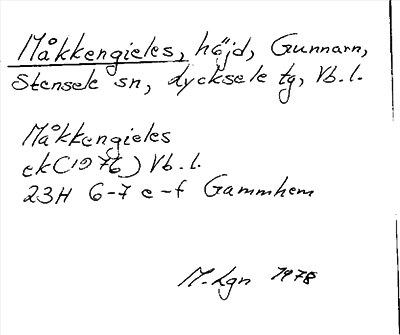 Måkkengieles, höjd, Gunnarn,
Stensele sn, Lycksele tg, Vb. l.
Måkkengieles
ek (1976) Vb. l.
23H 6-7 e-f Gammhem
M. Lgn 1978